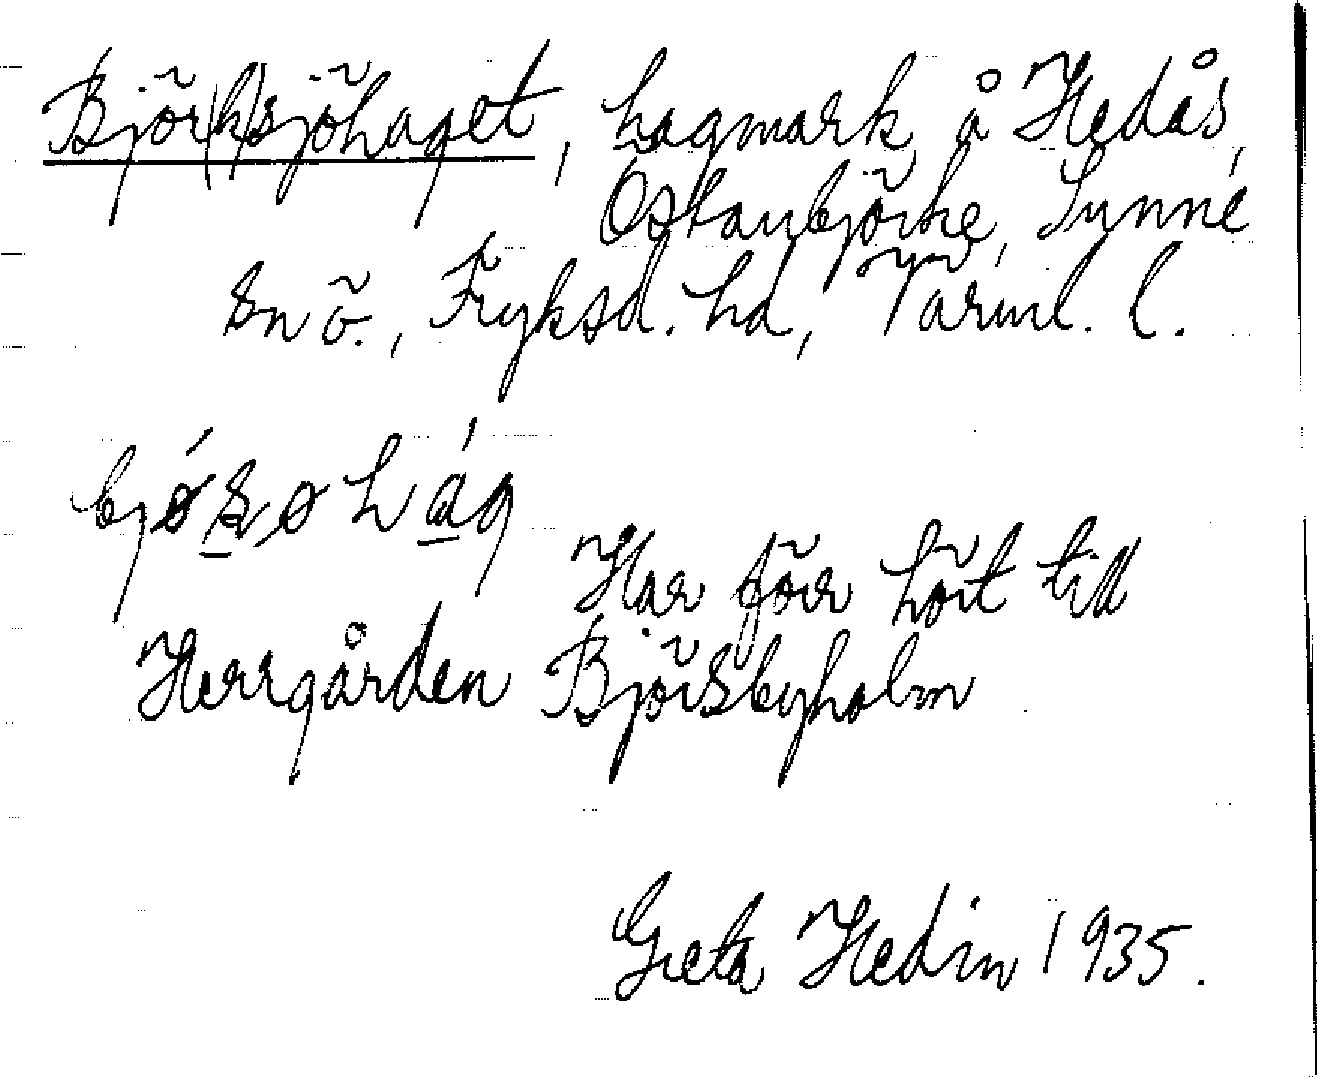 Björ(k)sjöhaget, hagmark å Hedås,
Östanbjörke, Sunne
sn ö., Fryksd. hd, Värml. l.
bjǿsøhág
Har förr hört till
Herrgården Björsbyholm
Greta Hedin 1935.